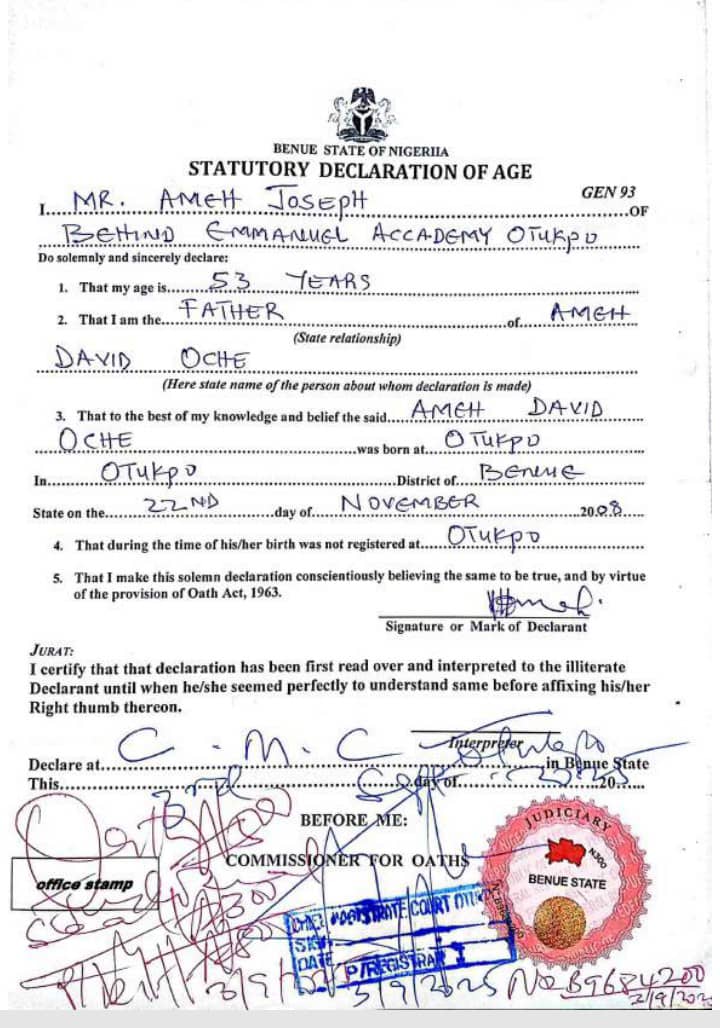 BENUE STATE OF NIGERIIA
STATUTORY DECLARATION OF AGE
GEN 93
I MR. AMEH JOSEPH OF
BEHIND EMMANUEL ACCADEMY OTUKPO
Do solemnly and sincerely declare:
1. That my age is 53 YEARS
2. That I am the FATHER of AMEH
(State relationship)
DAVID OCHE
(Here state name of the person about whom declaration is made)
3. That to the best of my knowledge and belief the said AMEH DAVID
OCHE was born at OTUKPO
In OTUKPO District of BENUE
State on the 22ND day of NOVEMBER 2008
4. That during the time of his/her birth was not registered at OTUKPO
5. That I make this solemn declaration conscientiously believing the same to be true, and by virtue
of the provision of Oath Act, 1963.
Signature or Mark of Declarant
JURAT:
I certify that that declaration has been first read over and interpreted to the illiterate
Declarant until when he/she seemed perfectly to understand same before affixing his/her
Right thumb thereon.
Interpreter
Declare at C.M.C Otukpo in Benue State
This 3rd day of Sept 2025
BEFORE ME:
COMMISSIONER FOR OATHS
office stamp
JUDICIARY
N300
BENUE STATE
CHIEF MAGISTRATE COURT OTUKPO
SIGN
DATE
P/REGISTRAR I
3/9/2025
No B9684200